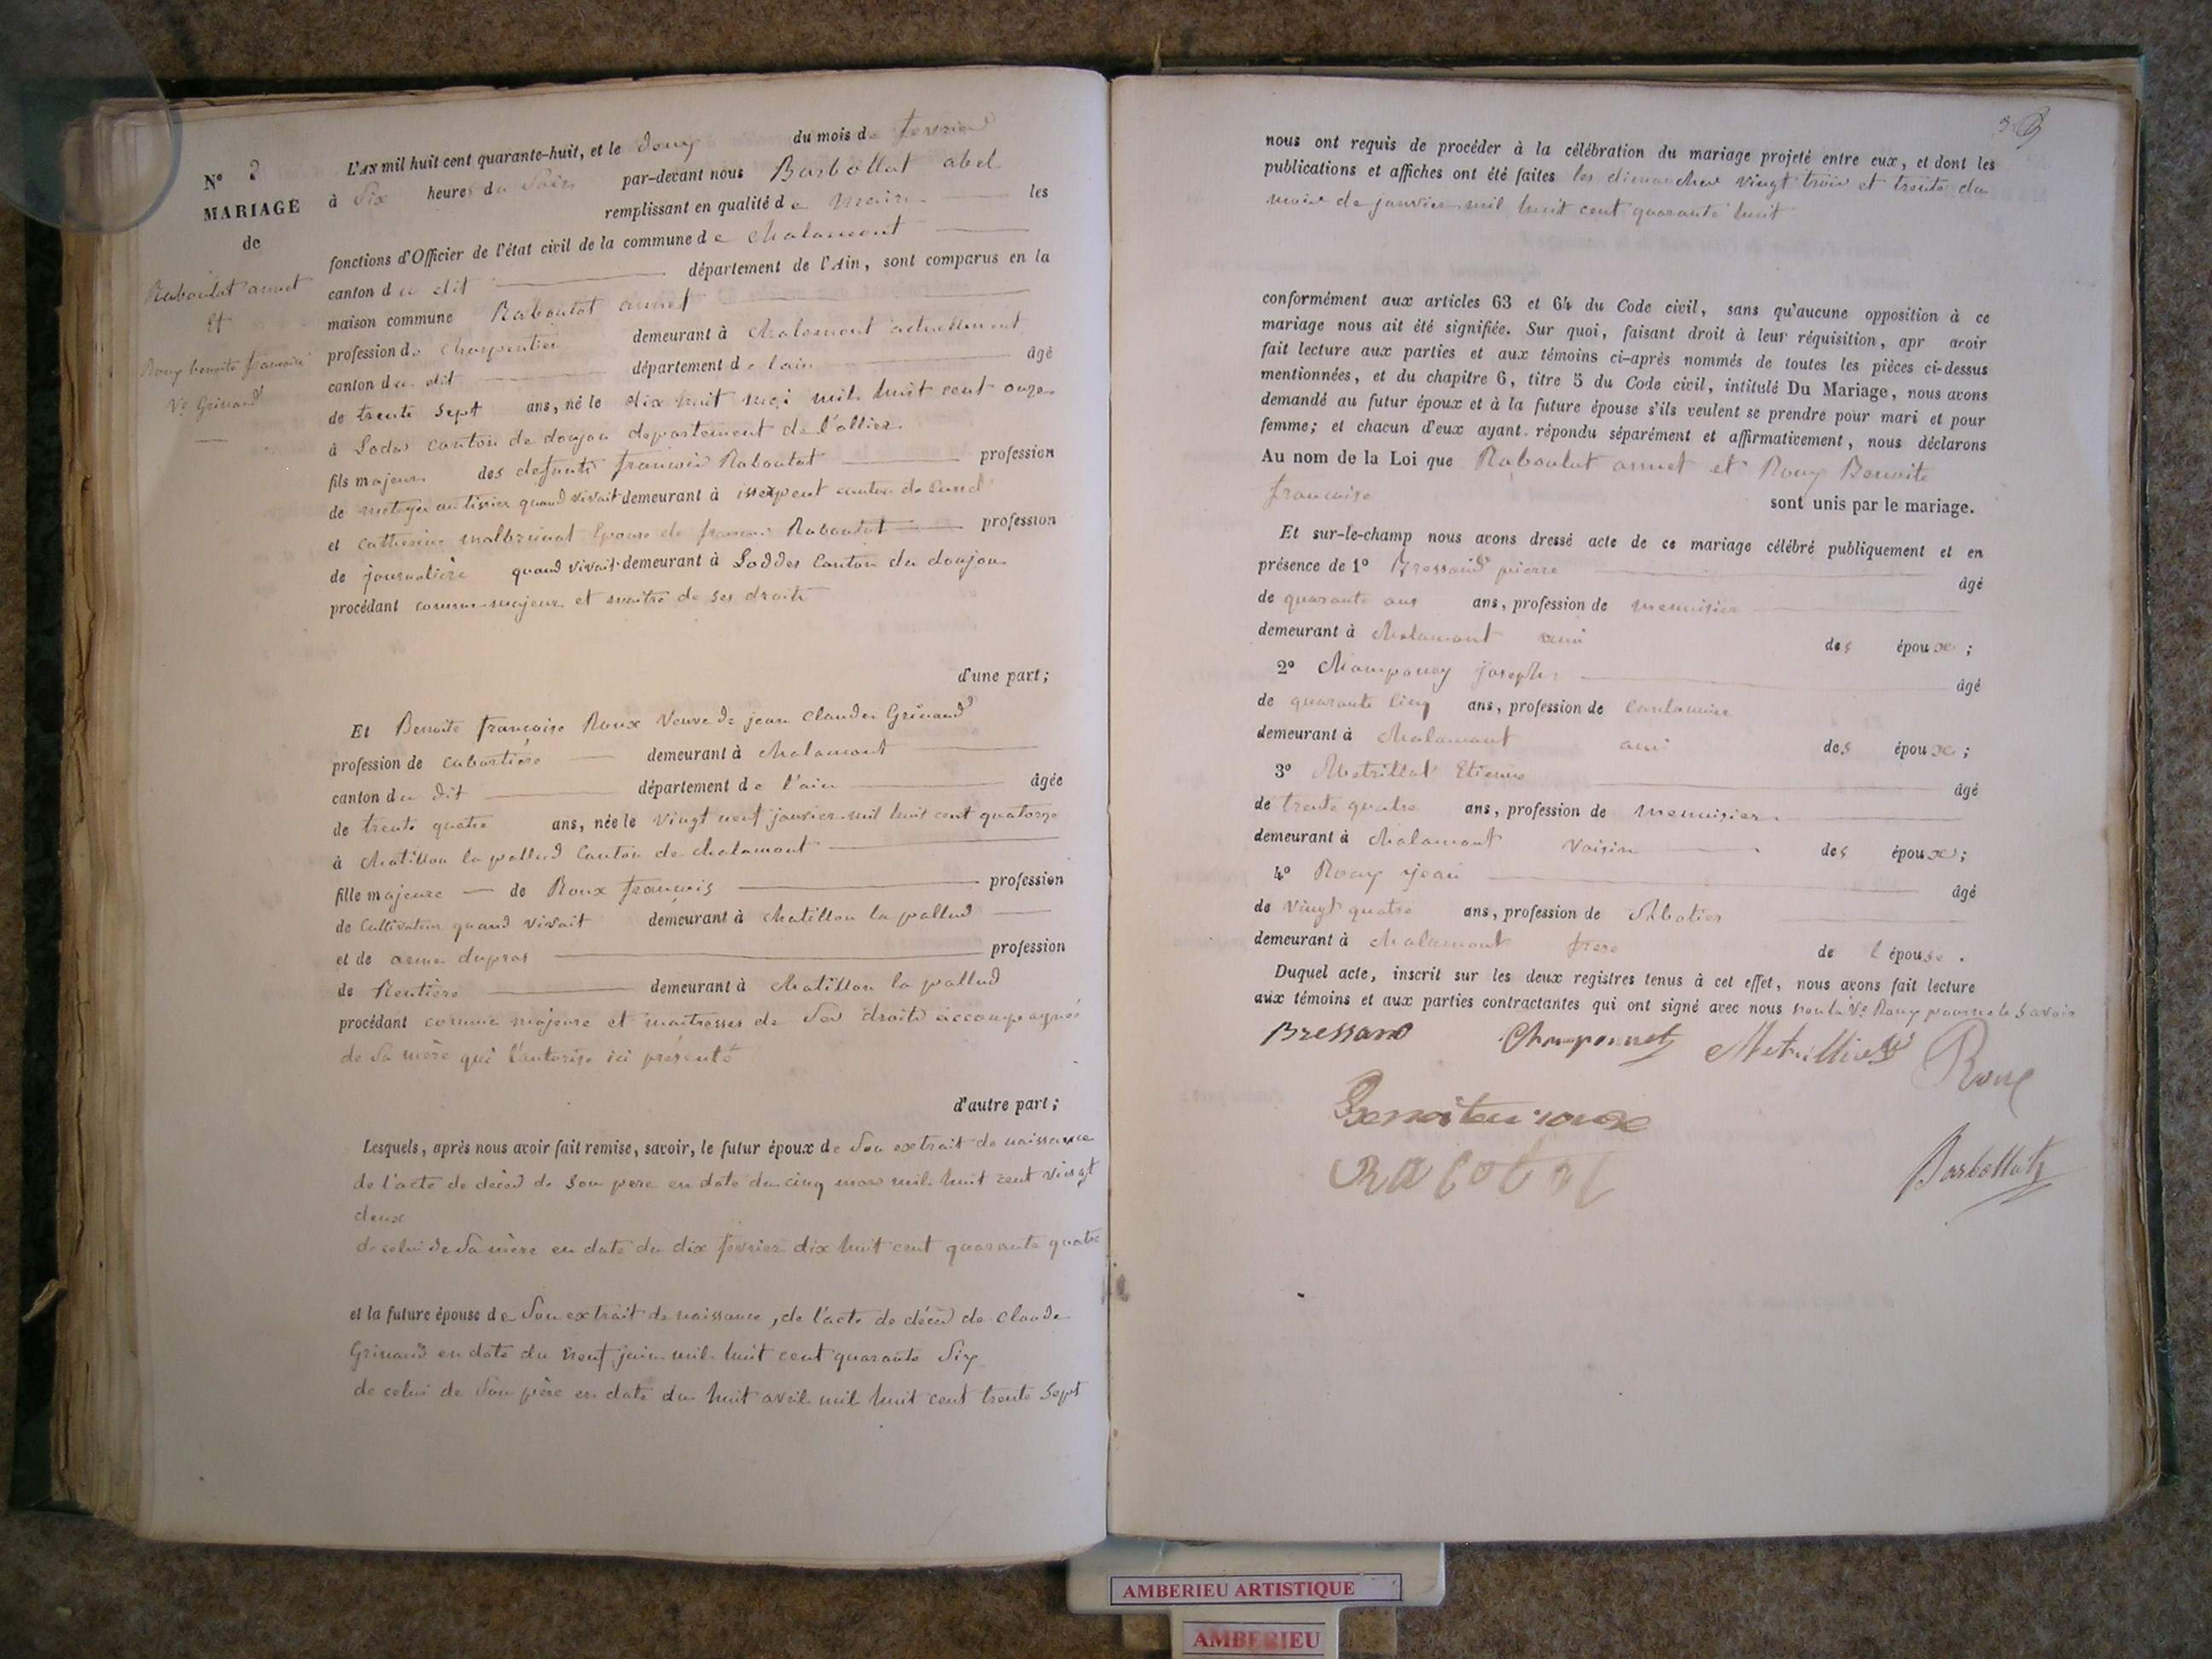 N° 3
MARIAGE
de
Raboutot annet
et
Roux benoite francoise
Ve Grinand
L'AN mil huit cent quarante-huit, et le douz du mois de fevrier
à Six heures du Soir par-devant nous Barbollat abel
remplissant en qualité de maire les
fonctions d'Officier de l'état civil de la commune de chalamont
canton du dit département de l'Ain, sont comparus en la
maison commune Raboutot annet
profession de charpentier demeurant à chalamont actuellement
canton du dit département de l'ain âgé
de trente sept ans, né le dix huit mai mil huit cent onze
à Lodde canton de donjon departement de l'allier
fils majeur des defunts francois Raboutot profession
de metayer quand vivait demeurant à isserpent canton de
et catherine malbrunot Epouse de francois Raboutot profession
de journaliere quand vivait demeurant à Loddes Canton du donjon
procédant comme majeur et maitre de ses droits
d'une part;
Et Benoite francoise Roux Veuve de jean claude Grinand
profession de cabartière demeurant à chalamont
canton du dit département de l'ain âgée
de trente quatre ans, née le vingt neuf janvier mil huit cent quatorze
à chatillon la pallud Canton de chalamont
fille majeure de Roux francois profession
de Cultivateur quand vivait demeurant à chatillon la pallud
et de anne dupras profession
de Rentière demeurant à chatillon la pallud
procédant comme majeure et maitresses de Ses droits accompagnés
de Sa mère qui l'autorise ici présente
d'autre part;
Lesquels, après nous avoir fait remise, savoir, le futur époux de Son extrait de naissance
de l'acte de décès de Son pere en date du cinq mars mil huit cent vingt
deux
de celui de Sa mère en date du dix fevrier dix huit cent quarante quatre
et la future épouse de Son extrait de naissance, de l'acte de décès de Claude
Grinand en date du neuf juin mil huit cent quarante Six
de celui de Son père en date du huit avril mil huit cent trente Sept
nous ont requis de procéder à la célébration du mariage projeté entre eux, et dont les
publications et affiches ont été faites les dimanches vingt trois et trente du
mois de janvier mil huit cent quarante huit
conformément aux articles 63 et 64 du Code civil, sans qu'aucune opposition à ce
mariage nous ait été signifiée. Sur quoi, faisant droit à leur réquisition, apr avoir
fait lecture aux parties et aux témoins ci-après nommés de toutes les pièces ci-dessus
mentionnées, et du chapitre 6, titre 5 du Code civil, intitulé Du Mariage, nous avons
demandé au futur époux et à la future épouse s'ils veulent se prendre pour mari et pour
femme; et chacun d'eux ayant répondu séparément et affirmativement, nous déclarons
Au nom de la Loi que Raboutot annet et Roux Benoite
francoise sont unis par le mariage.
Et sur-le-champ nous avons dressé acte de ce mariage célébré publiquement et en
présence de 1° Bressand pierre âgé
de quarante ans ans, profession de menuisier
demeurant à chalamont ami des époux;
2° Champoney joseph âgé
de quarante cinq ans, profession de Cantonnier
demeurant à chalamont ami des époux;
3° Metrillat Etienne âgé
de trente quatre ans, profession de menuisier
demeurant à chalamont Voisin des époux;
4° Roux jean âgé
de vingt quatre ans, profession de Sabotier
demeurant à chalamont frere de l'épouse.
Duquel acte, inscrit sur les deux registres tenus à cet effet, nous avons fait lecture
aux témoins et aux parties contractantes qui ont signé avec nous non la Ve Roux pour ne le Savoir
Bressand Champonnet Metrilliat Roux
Benoite roux
Rabotot
Barbollat
AMBERIEU ARTISTIQUE
AMBERIEU